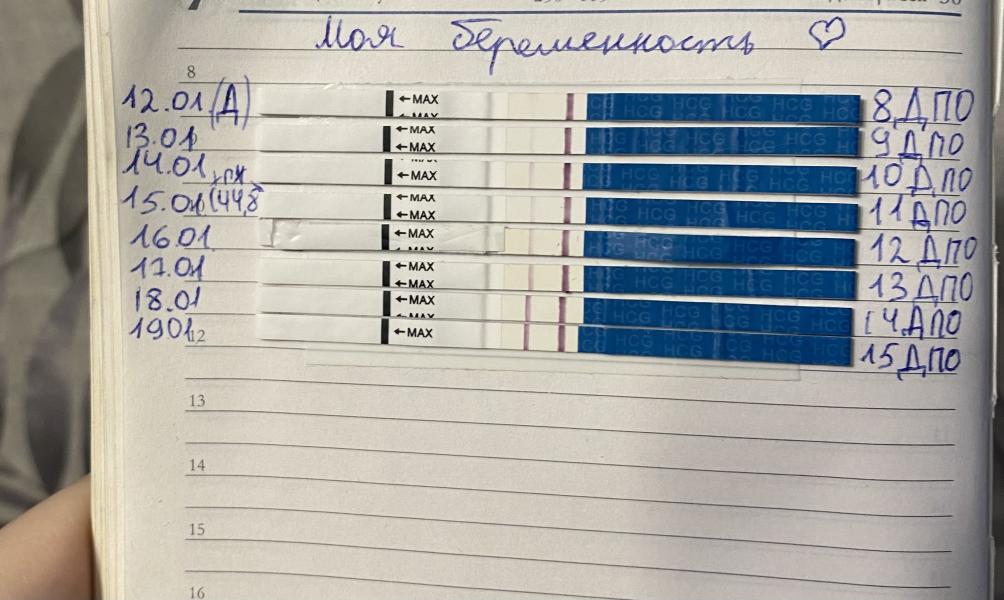 Моя беременность ♡
8
12.01 (Д) ←MAX HCG HCG HCG HCG 8 ДПО
13.01 ←MAX ←MAX 9 ДПО
14.01 ←MAX HCG HCG HCG 10 ДПО
15.01 (44,8 ←MAX ←MAX HCG HCG HCG 11 ДПО
16.01 ←MAX HCG HCG 12 ДПО
17.01 ←MAX HCG HCG HCG 13 ДПО
18.01 ←MAX HCG HCG 14 ДПО
19.01 ←MAX HCG HCG HCG 15 ДПО
12
13
14
15
16